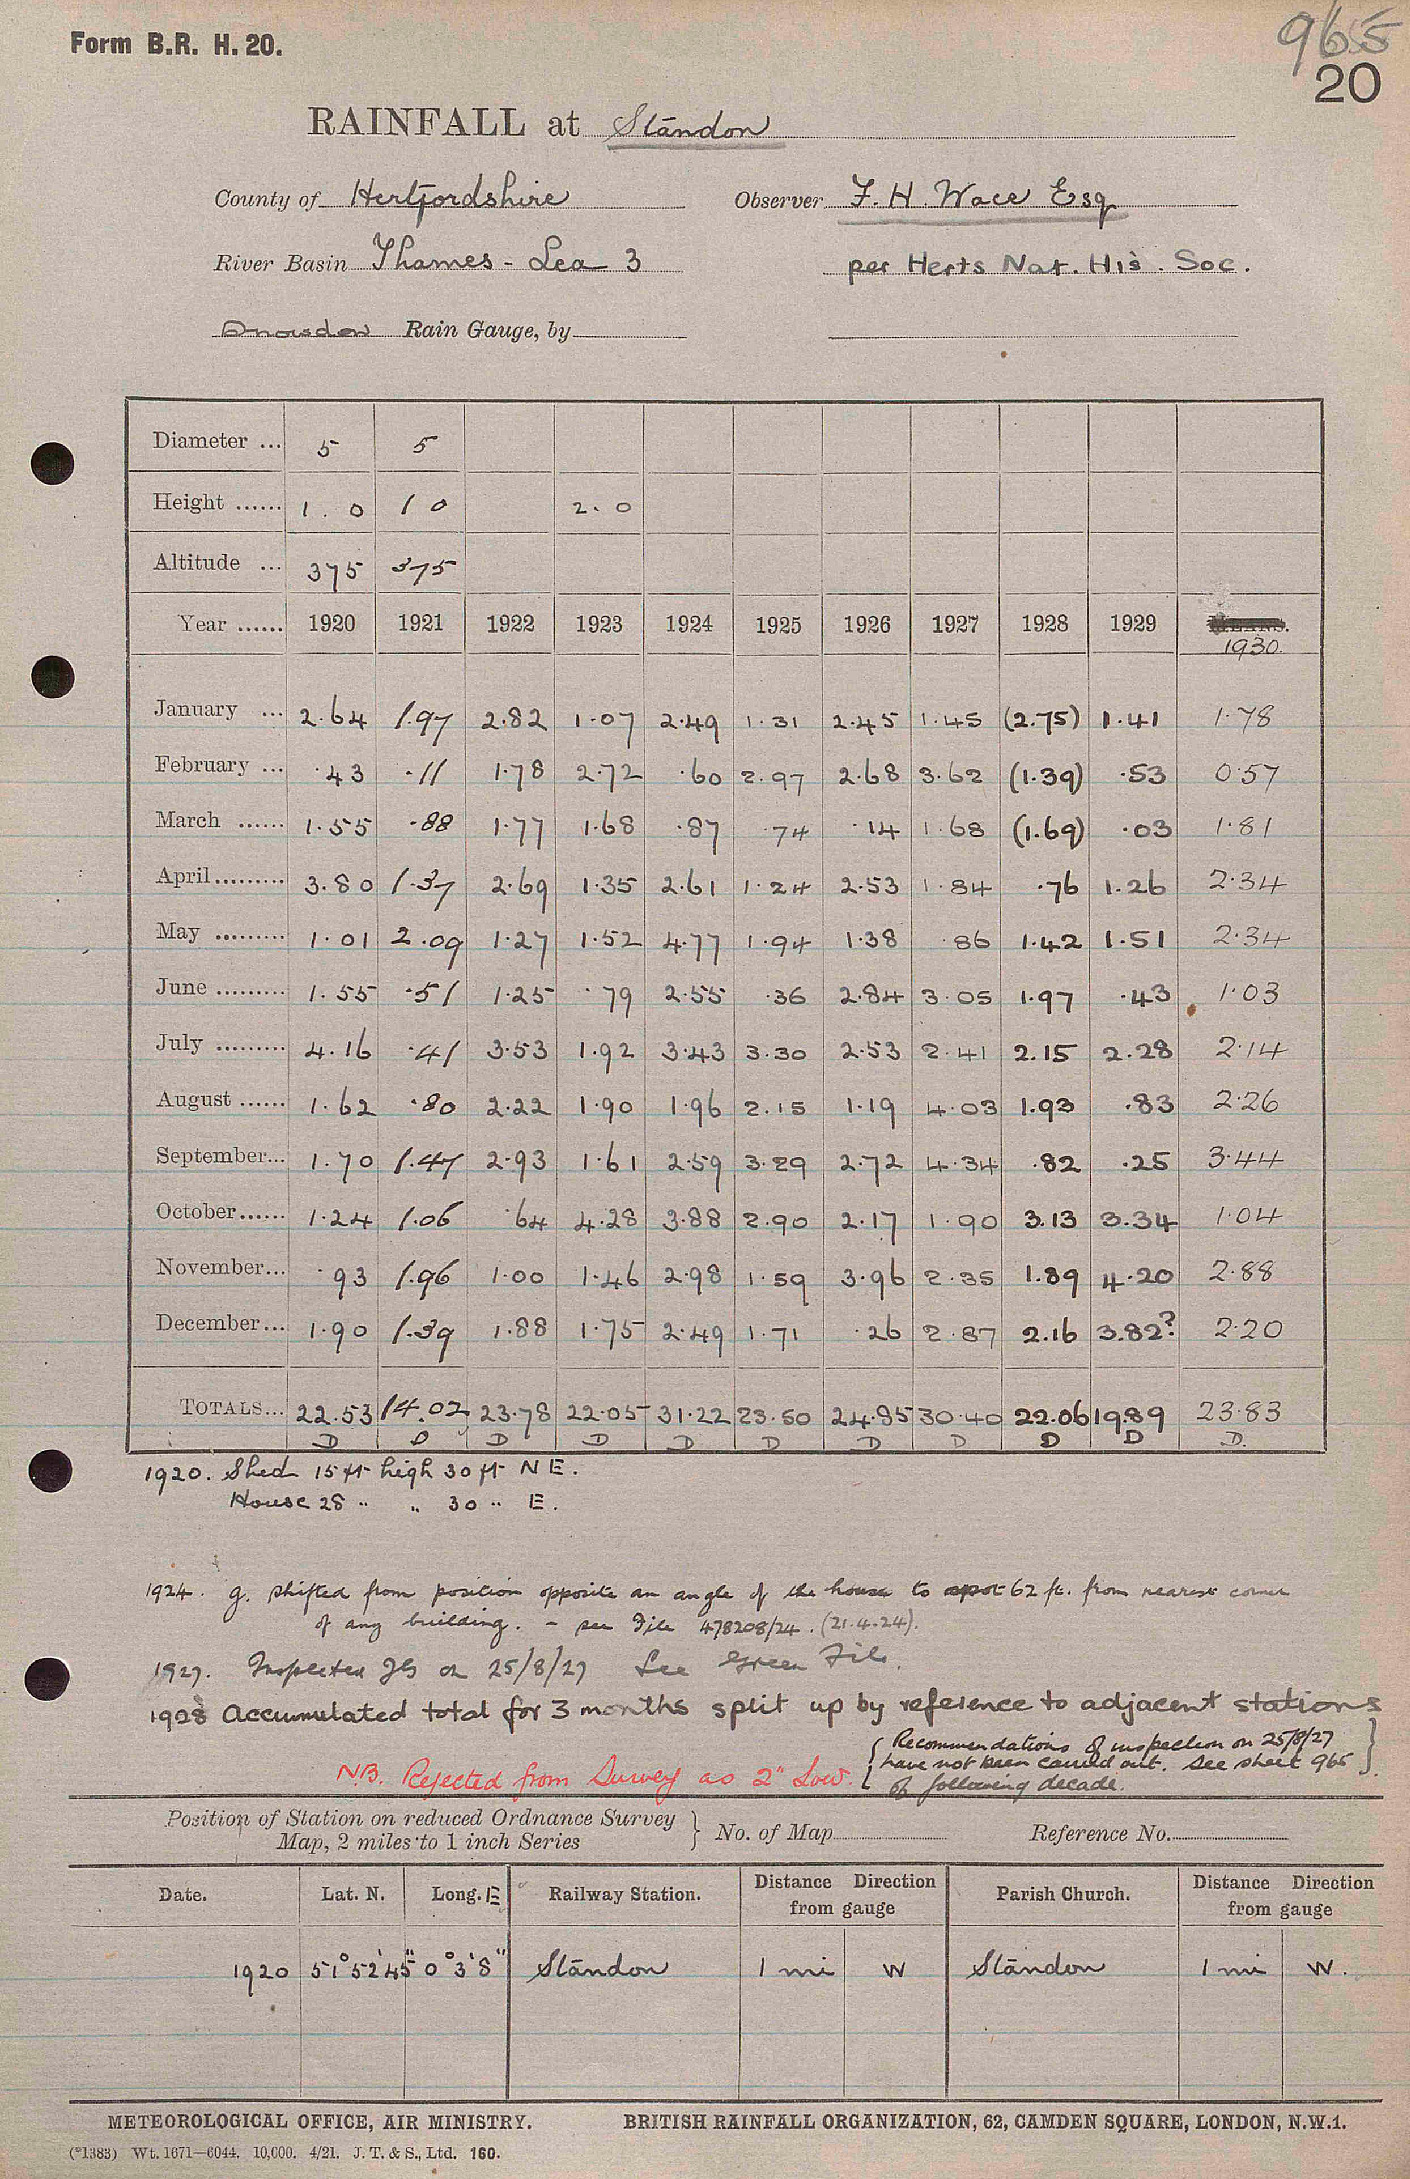 965
Form B.R. H. 20.
20
RAINFALL at Standon
County of Hertfordshire Observer F. H. Wace Esq
River Basin Thames - Lea 3 per Herts Nat. His. Soc.
Snowdon Rain Gauge, by
Diameter ... 5 5
Height ...... 1.0 1 0 2.0
Altitude ... 375 375
Year ...... 1920 1921 1922 1923 1924 1925 1926 1927 1928 1929 1930
January ... 2.64 1.97 2.82 1.07 2.49 1.31 2.45 1.45 (2.75) 1.41 1.78
February ... .43 .11 1.78 2.72 .60 2.97 2.68 3.62 (1.39) .53 0.57
March ...... 1.55 .88 1.77 1.68 .87 .74 .14 1.68 (1.69) .03 1.81
April......... 3.80 1.37 2.69 1.35 2.61 1.24 2.53 1.84 .76 1.26 2.34
May ......... 1.01 2.09 1.27 1.52 4.77 1.94 1.38 .86 1.42 1.51 2.34
June ......... 1.55 .51 1.25 .79 2.55 .36 2.84 3.05 1.97 .43 1.03
July ......... 4.16 .41 3.53 1.92 3.43 3.30 2.53 2.41 2.15 2.28 2.14
August ...... 1.62 .80 2.22 1.90 1.96 2.15 1.19 4.03 1.93 .83 2.26
September... 1.70 1.47 2.93 1.61 2.59 3.29 2.72 4.34 .82 .25 3.44
October...... 1.24 1.06 .64 4.28 3.88 2.90 2.17 1.90 3.13 3.34 1.04
November... .93 1.96 1.00 1.46 2.98 1.59 3.96 2.35 1.89 4.20 2.88
December... 1.90 1.39 1.88 1.75 2.49 1.71 .26 2.87 2.16 3.82? 2.20
TOTALS... 22.53 14.02 23.78 22.05 31.22 23.50 24.85 30.40 22.06 19.89 23.83
D D D D D D D D D D D.
1920. Shed 15 ft high 30 ft NE.
House 28 " " 30 " E.
1924. g. shifted from position opposite an angle of the house to spot 62 ft. from nearest corner
of any building. - see File 478208/24. (21.4.24).
1927. Inspected JG on 25/8/27 See Green File.
1928 Accumulated total for 3 months split up by reference to adjacent stations
{ Recommendations of inspection on 25/8/27 }
NB. Rejected from Survey as 2" Low. have not been carried out. See sheet 965
of following decade.
Position of Station on reduced Ordnance Survey } No. of Map Reference No.
Map, 2 miles to 1 inch Series
Date. Lat. N. Long. E Railway Station. Distance Direction from gauge Parish Church. Distance Direction from gauge
1920 51°52'45" 0°3'8" Standon 1 mi W Standon 1 mi W.
METEOROLOGICAL OFFICE, AIR MINISTRY. BRITISH RAINFALL ORGANIZATION, 62, CAMDEN SQUARE, LONDON, N.W.1.
(*1383) Wt. 1671—6044. 10,000. 4/21. J. T. & S., Ltd. 160.